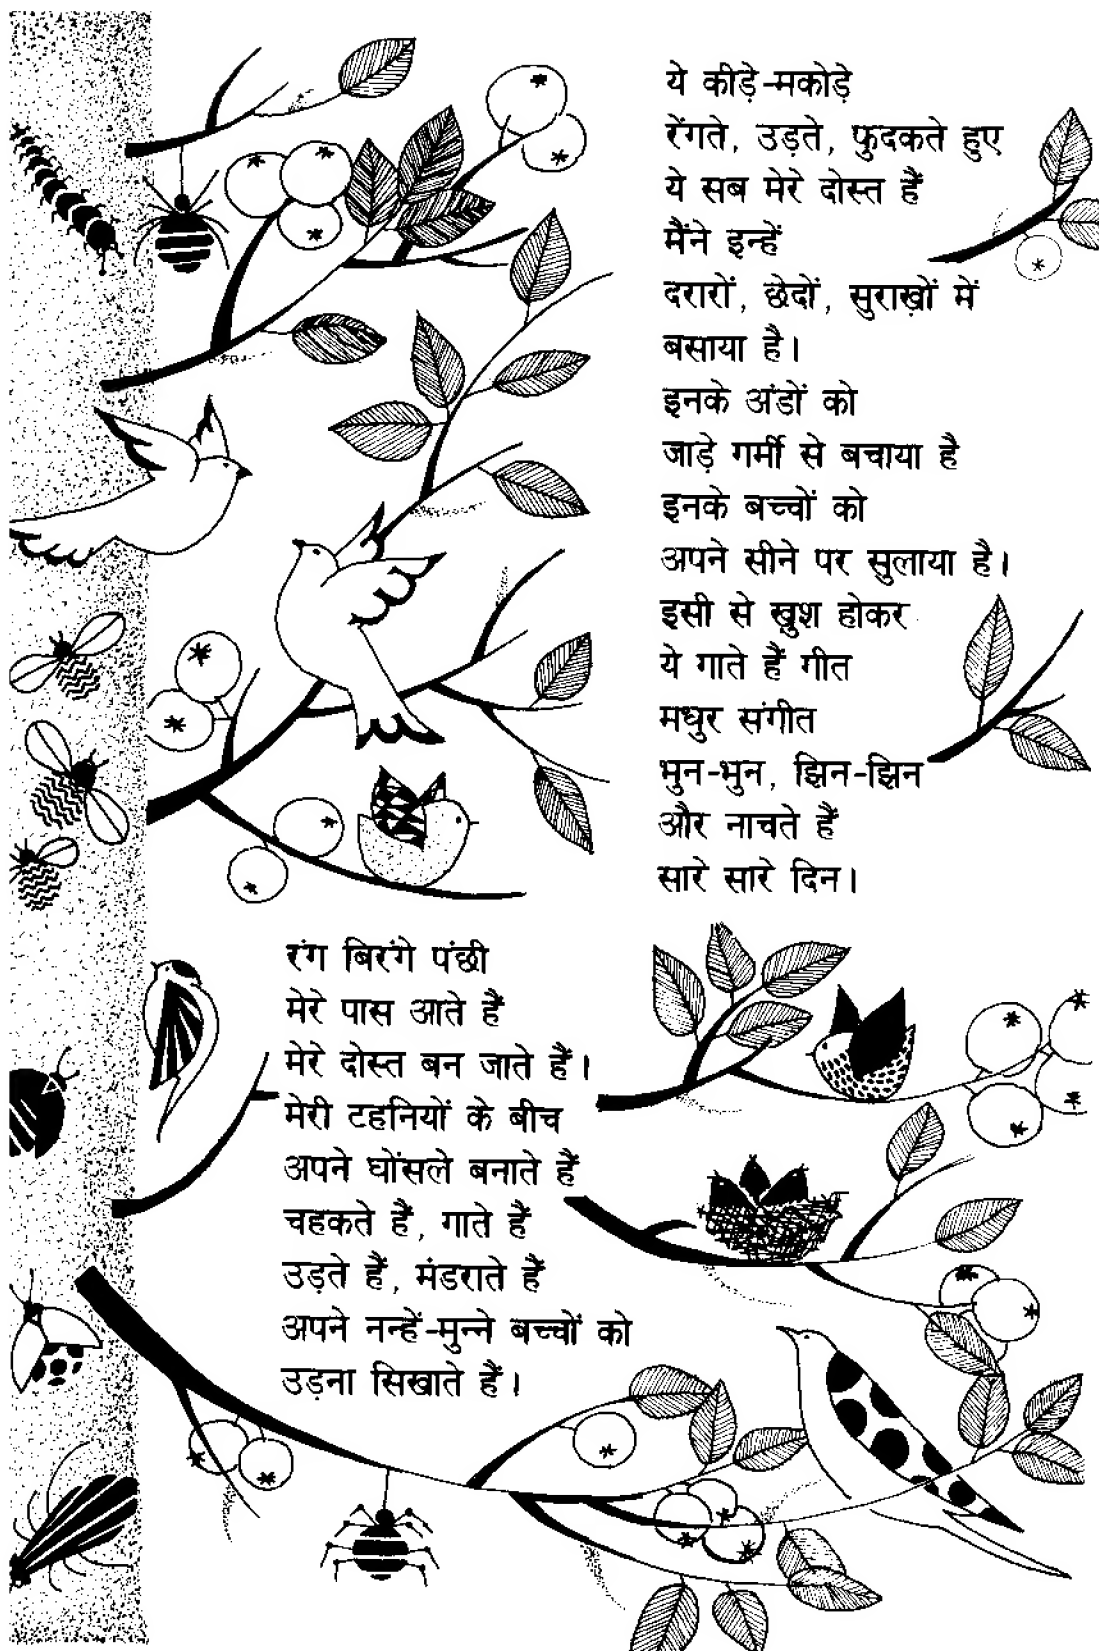 ये कीड़े-मकोड़े
रेंगते, उड़ते, फुदकते हुए
ये सब मेरे दोस्त हैं
मैंने इन्हें
दरारों, छेदों, सुराख़ों में
बसाया है।
इनके अंडों को
जाड़े गर्मी से बचाया है
इनके बच्चों को
अपने सीने पर सुलाया है।
इसी से ख़ुश होकर
ये गाते हैं गीत
मधुर संगीत
भुन-भुन, झिन-झिन
और नाचते हैं
सारे सारे दिन।
रंग बिरंगे पंछी
मेरे पास आते हैं
मेरे दोस्त बन जाते हैं।
मेरी टहनियों के बीच
अपने घोंसले बनाते हैं
चहकते हैं, गाते हैं
उड़ते हैं, मंडराते हैं
अपने नन्हें-मुन्ने बच्चों को
उड़ना सिखाते हैं।